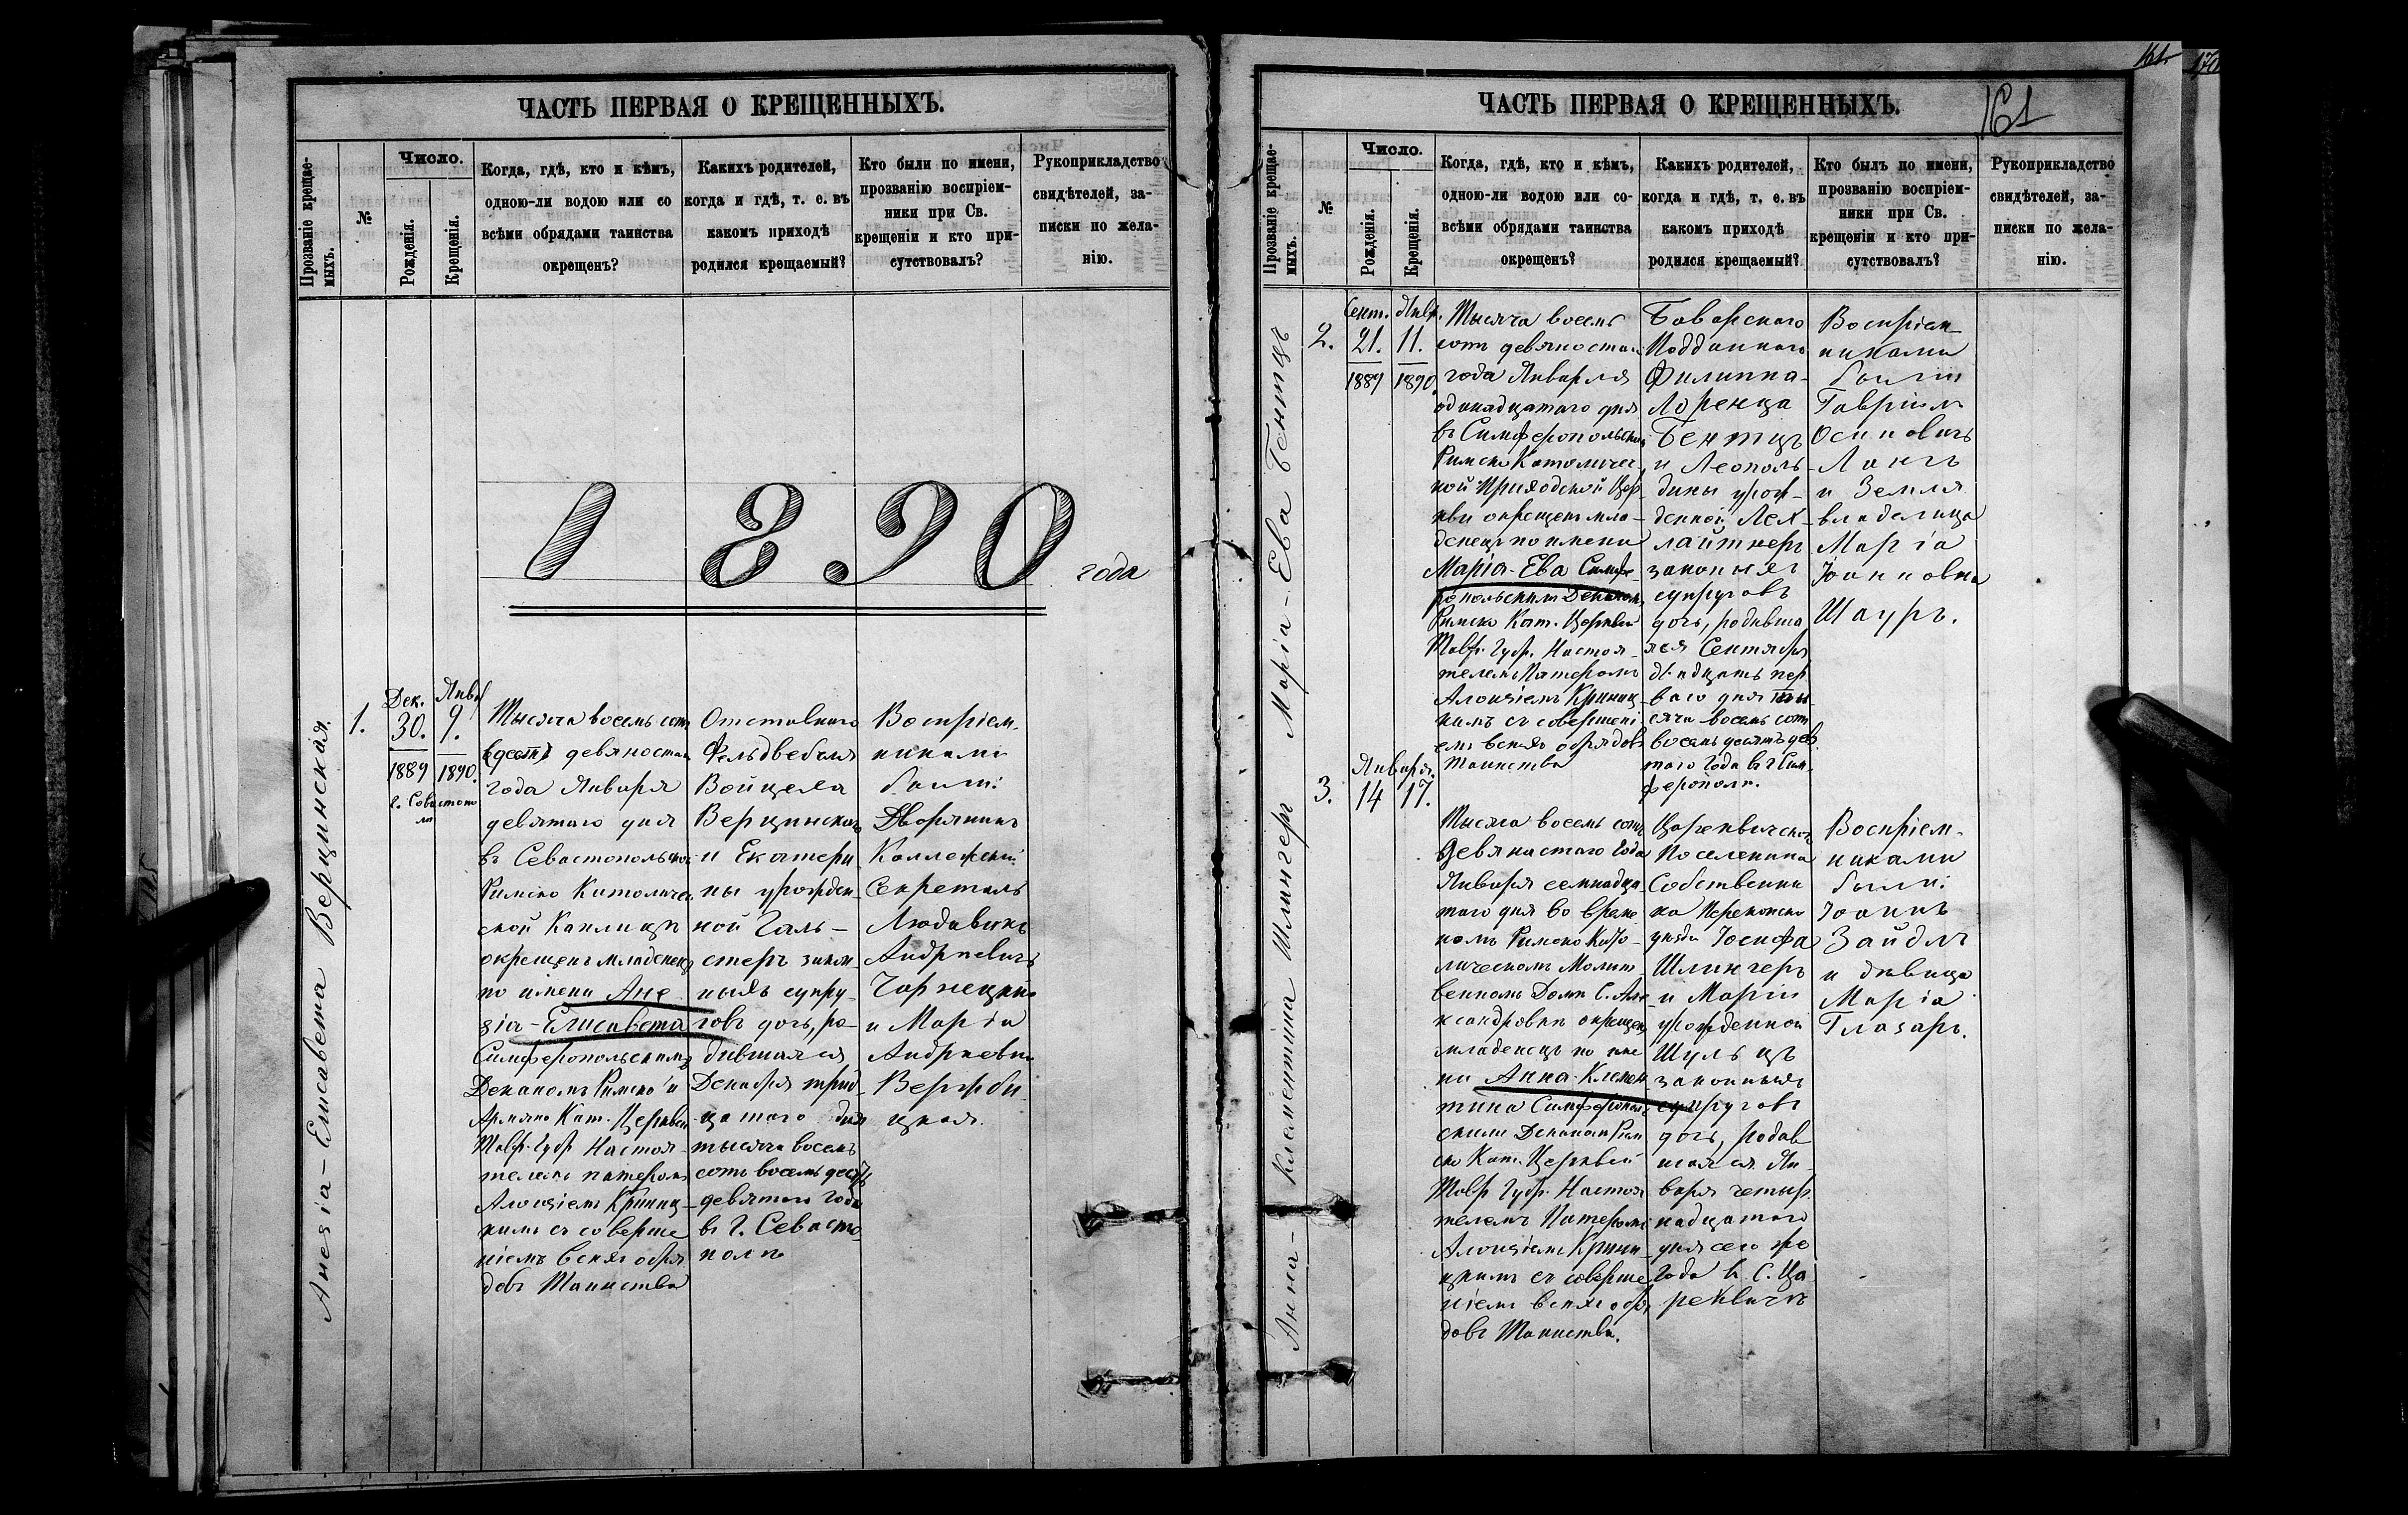 ЧАСТЬ ПЕРВАЯ О КРЕЩЕННЫХЪ.
Прозваніе крещае-
мыхъ.
№
Число.
Рожденія.
Крещенія.
Когда, гдѣ, кто и кѣмъ,
одною-ли водою или со
всѣми обрядами таинства
окрещенъ?
Какихъ родителей,
когда и гдѣ, т. е. въ
какомъ приходѣ
родился крещаемый?
Кто были по имени,
прозванію воспріем-
ники при Св.
крещеніи и кто при-
сутствовалъ?
Рукоприкладство
свидѣтелей, за-
писки по жела-
нію.
1890 года
Анезіа-Елисавета Верцинская.
1.
Дек.
30.
1889
Янвр
9.
1890.
г. Севастопо
Тысяча восемь сотъ
девяностаго
года Января
девятаго дня
въ Севастопольской
Римско Католичес
ской Каплицѣ
окрещенъ младенецъ
по имени Ане
зіа-Елисавета
Симферопольскимъ
Деканомъ Римско и
Армяно Кат. Церквей
Тавр. Губр Настоя-
телемъ патеромъ
Алоизіемъ Криниц-
кимъ съ соверше
ніемъ всѣхъ обря
довъ Таинства
Отставнаго
Фельдвебеля
Войцеха
Верцинскаго
и Екатери
ны урожден-
ной Галь-
стеръ закон-
ныхъ супру-
говъ дочь, ро-
дившаяся
Декабря трид-
цатаго дня
тысяча восемь
сотъ восемьдесятъ
девятаго года
въ г. Севасто
полѣ
Воспріем-
никами
были:
Дворянинъ
Коллежскій
Секретарь
Людовикъ
Андреевичъ
Чарнецкій
и Марія
Андреевна
Вержби
цкая.
161.
170
161
ЧАСТЬ ПЕРВАЯ О КРЕЩЕННЫХЪ.
Прозваніе крещае-
мыхъ.
№
Число.
Рожденія.
Крещенія.
Когда, гдѣ, кто и кѣмъ,
одною-ли водою или со-
всѣми обрядами таинства
окрещенъ?
Какихъ родителей,
когда и гдѣ, т. е. въ
какомъ приходѣ
родился крещаемый?
Кто былъ по имени,
прозванію воспріем-
ники при Св.
крещеніи и кто при-
сутствовалъ?
Рукоприкладство
свидѣтелей, за-
писки по жела-
нію.
Маріа-Ева Бентцъ
2.
Сент.
21.
1889
Янвр.
11.
1890.
Тысяча восемь
сотъ девяностаго
года Января
одинадцатаго дня
въ Симферопольской
Римско Католичес-
кой Приходской Цер-
кви окрещенъ мла-
денецъ по имени
Маріа-Ева Симфе-
ропольскимъ Деканом
Римско Кат. Церквей
Тавр. Губр. Настоя-
телемъ Патеромъ
Алоизіемъ Криниц-
кимъ съ совершені
емъ всѣхъ обрядовъ
Таинства
Баварскаго
Подданнаго
Филиппа-
Лоренца
Бентцъ
и Леополь-
дины урож-
денной Лех-
лайтнеръ
законныхъ
супруговъ
дочь, родивша
яся Сентября
двадцать пер
ваго дня ты-
сяча восемь сотъ
восемьдесятъ дев
таго года въ г. Сим-
ферополѣ.
Воспріем-
никами
были
Гавріилъ
Осиповичъ
Лангъ
и Земле
владелица
Маріа
Іоанновна
Шауръ.
Анна-Клементина Шлингеръ
3.
Января.
14
17.
Тысяча восемь сотъ
девяностаго года
Января семнадца-
таго дня во време
номъ Римско Като-
лическомъ Молит-
венномъ Домѣ С. Але-
ксандровкѣ окрещенъ
младенецъ по име
ни Анна-Клемен
тина Симферополь
скимъ Деканом Рим
ско Кат. Церквей
Тавр Губр. Настоя
телемъ Патеромъ
Алоизіемъ Крини-
цкимъ съ соверше
ніемъ всѣхъ обря
довъ Таинства.
Цареквичскаго
Поселенина
Собственни
ка Перекопско
уѣзда Іосифа
Шлингеръ
и Маріи
урожденной
Шульцъ
законныхъ
супруговъ
дочь, родив
шаяся Ян-
варя четыр
надцатаго
дня сего же
года въ С. Ца
реквичѣ
Воспріем-
никами
были:
Іоаннъ
Зайдлъ
и дѣвица
Маріа
Глазаръ.